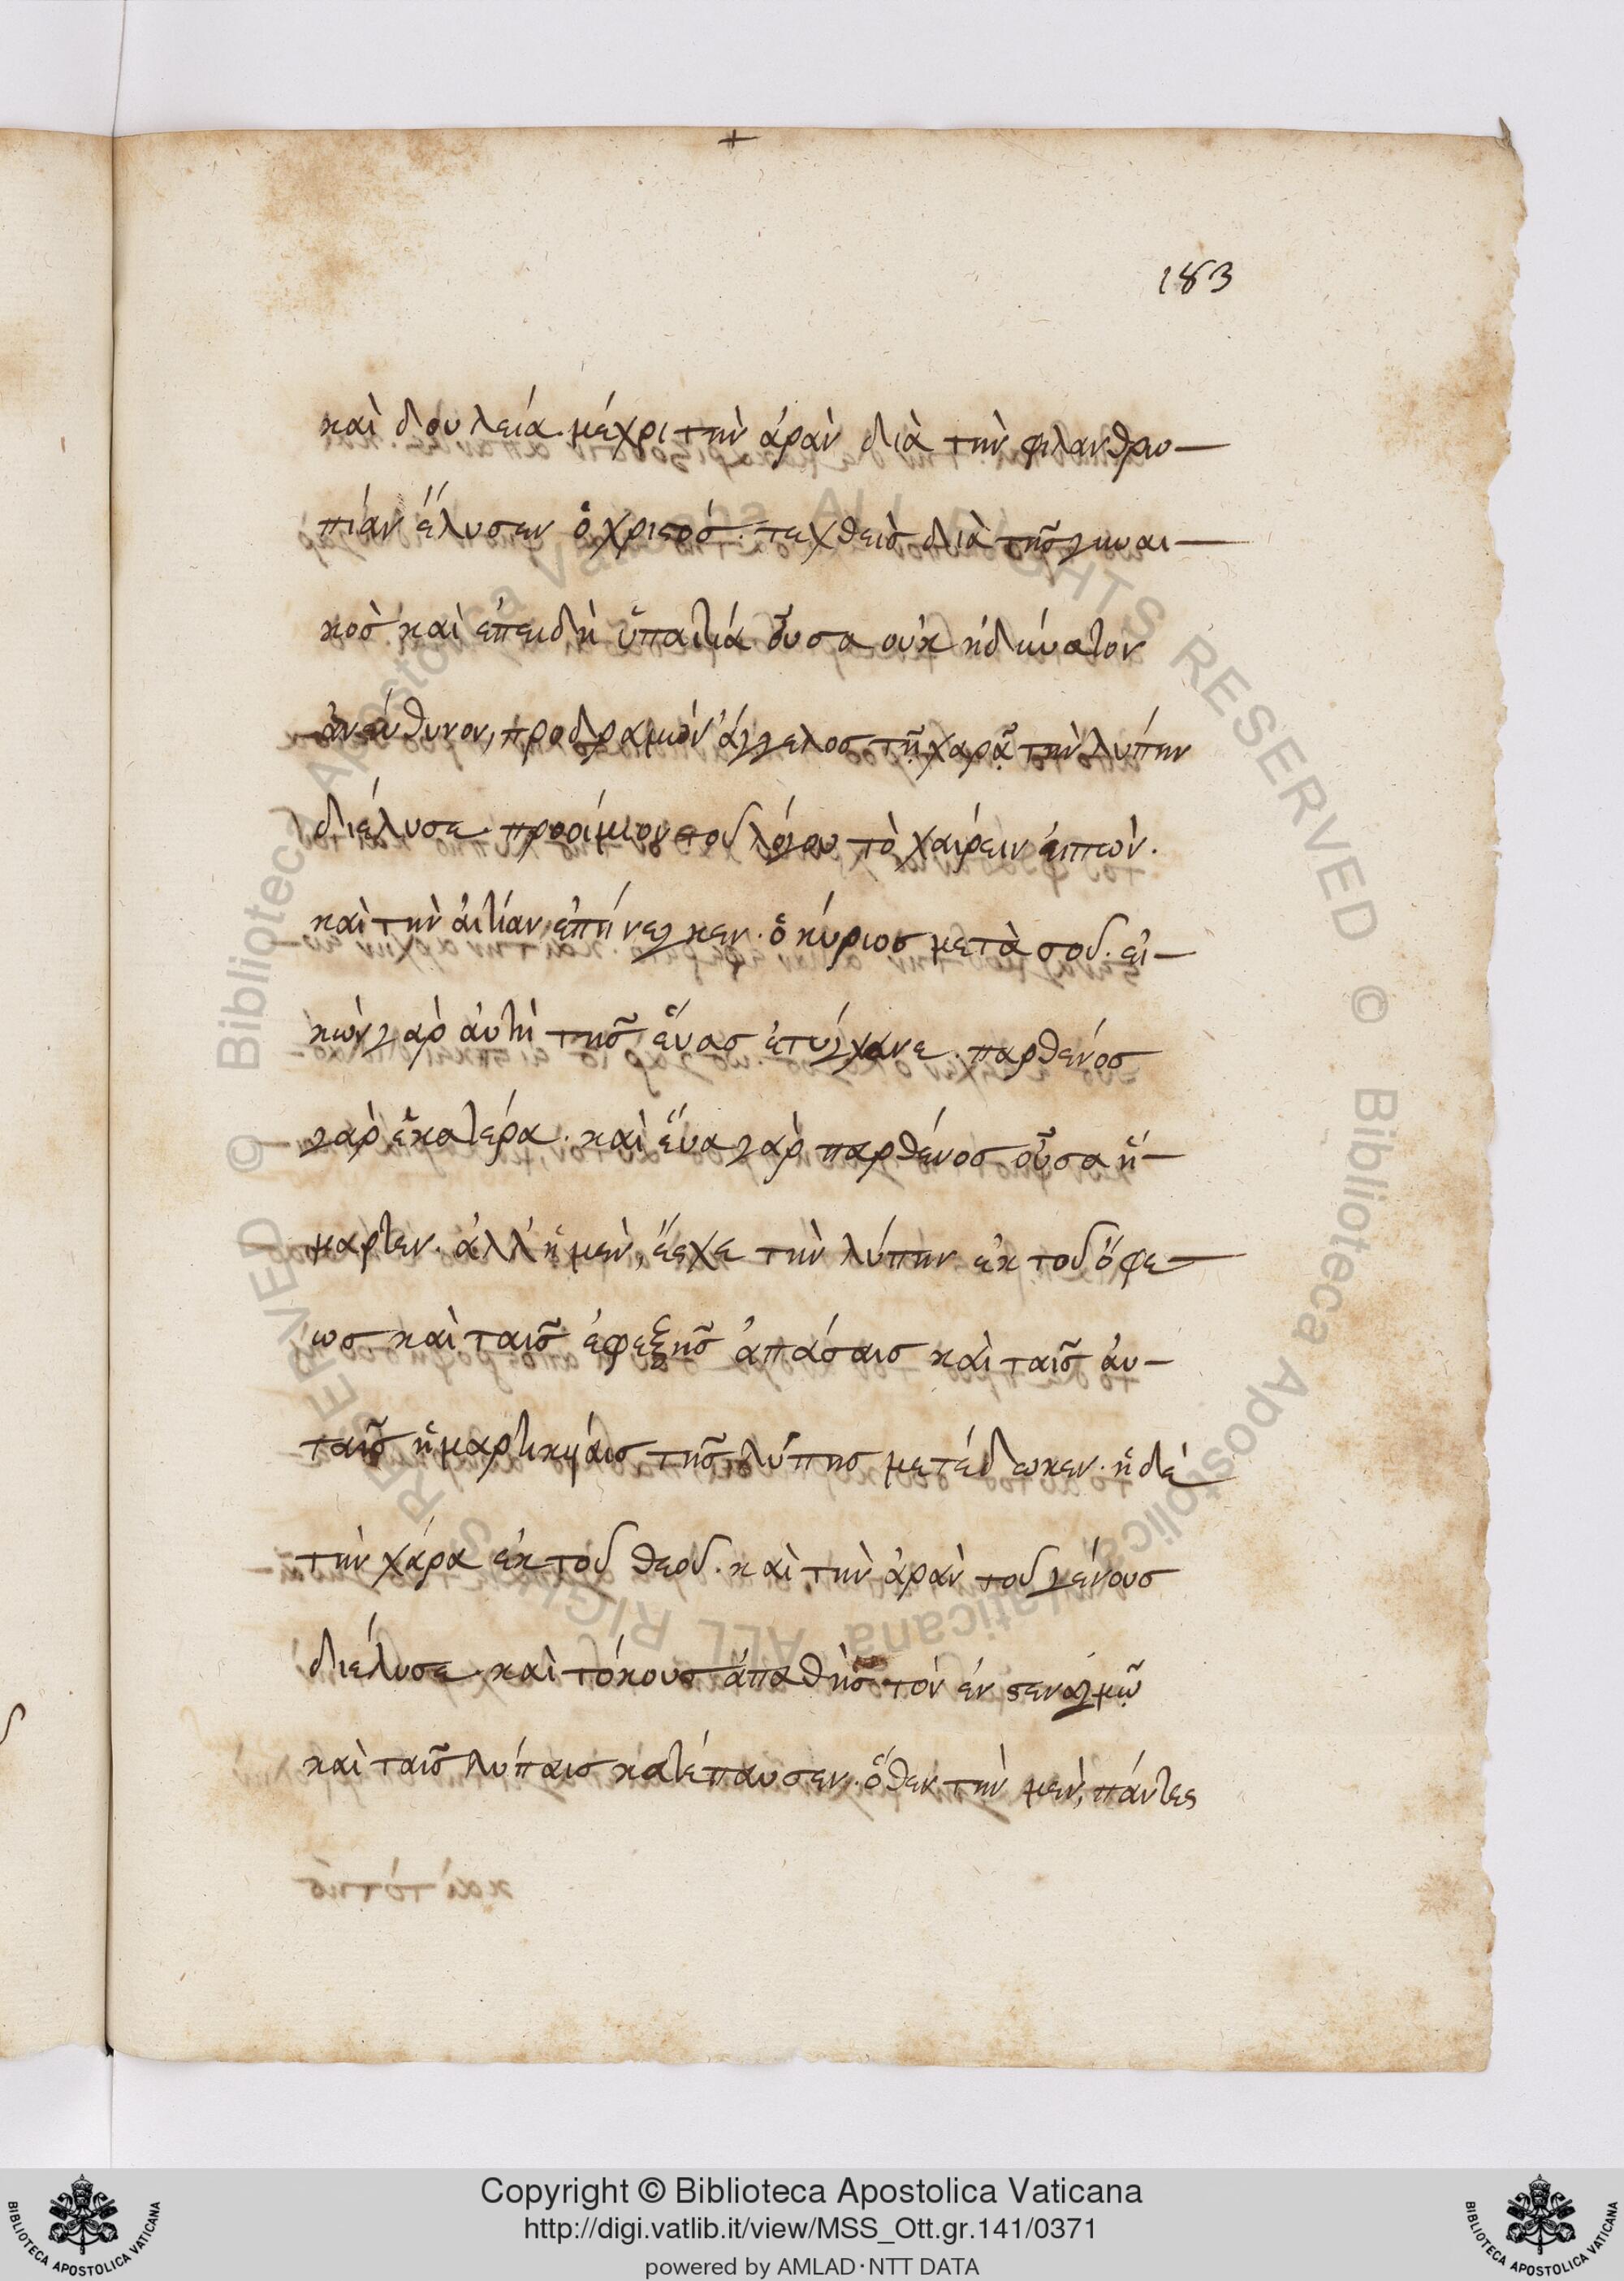 183
καὶ δουλεία. μέχρι τὴν ἀρὰν διὰ τὴν φιλανθρω–
πίαν ἔλυσεν ὁ χριστός. τεχθεὶς διὰ τῆς γυναι–
κὸς καὶ ἐπειδὴ ὑπαιτία οὖσα οὐκ ἠδύνατον
ἀνεύθυνον, προδραμὼν ἄγγελος τῇ χαρᾷ τὴν λύπην
διέλυσε. προοίμιον τοῦ λόγου τὸ χαίρειν εἰπών.
καὶ τὴν ἀιτίαν ἐπήνεγκεν. ὁ κύριος μετὰ σοῦ. εἰ–
κὼν γὰρ ἀυτὴ τῆς ἔυας ἐτύγχανε. παρθένος
γὰρ ἑκατέρα. καὶ ἔυα γὰρ παρθένος οὖσα ἥ–
μαρτεν. ἀλλ' ἡ μὲν, ἔσχε τὴν λύπην ἐκ τοῦ ὄφε–
ως καὶ ταῖς ἐφεξῆς ἁπάσαις καὶ ταῖς ἀυ–
ταῖς ἡμαρτηκυίαις τῆς λύπης μετέδωκεν. ἡ δὲ
τὴν χάρα ἐκ τοῦ θεοῦ. καὶ τὴν ἀρὰν τοῦ γένους
διέλυσε. καὶ τόκους ἀπαθὴς τὸν ἐν στεναγμῷ
καὶ ταῖς λύπαις κατέπαυσεν. ὅθεν τὴν μὲν, πάντες
Copyright © Biblioteca Apostolica Vaticana
http://digi.vatlib.it/view/MSS_Ott.gr.141/0371
powered by AMLAD·NTT DATA
BIBLIOTECA APOSTOLICA VATICANA
BIBLIOTECA APOSTOLICA VATICANA
© Biblioteca Apostolica Vaticana ALL RIGHTS RESERVED © Biblioteca Apostolica Vaticana ALL RIGHTS RESERVED